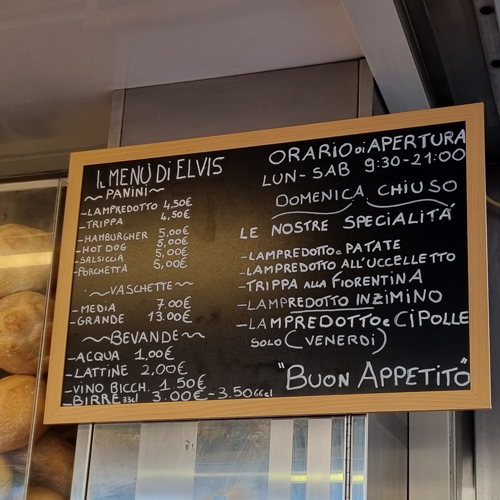 IL MENÙ DI ELVIS
~PANINI~
-LAMPREDOTTO 4,50€
-TRIPPA 4,50€
-HAMBURGHER 5,00€
-HOT DOG 5,00€
-SALSICCIA 5,00€
-PORCHETTA 5,00€
~VASCHETTE~
-MEDIA 7.00€
-GRANDE 13.00€
~BEVANDE~
-ACQUA 1,00€
-LATTINE 2,00€
-VINO BICCH. 1.50€
-BIRRE 33cl 3.00€-3.50 66cl
ORARIO DI APERTURA
LUN-SAB 9:30-21:00
DOMENICA CHIUSO
LE NOSTRE SPECIALITÁ
-LAMPREDOTTO e PATATE
-LAMPREDOTTO ALL'UCCELLETTO
-TRIPPA ALLA FIORENTINA
-LAMPREDOTTO INZIMINO
-LAMPREDOTTO e CIPOLLE
SOLO (VENERDI)
"BUON APPETITO"